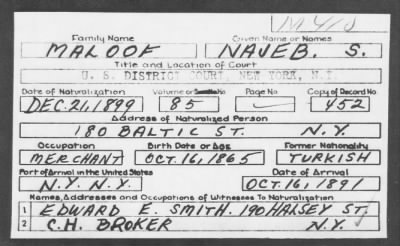 M410
Family Name Given Name or Names
MALOOF NAJEB. S.
Title and Location of Court
U. S. DISTRICT COURT, NEW YORK, N.Y.
Date of Naturalization Volume or No Page No Copy of Record No
DEC. 21, 1899 85 452
Address of Naturalized Person
180 BALTIC ST. N.Y.
Occupation Birth Date or Age Former Nationality
MERCHANT OCT. 16, 1865 TURKISH
Port of Arrival in the United States Date of Arrival
N.Y. N.Y. OCT. 16, 1891
Names, Addresses and Occupations of Witnesses To Naturalization
1 EDWARD E. SMITH. 190 HALSEY ST.
2 C.H. BROKER N.Y.